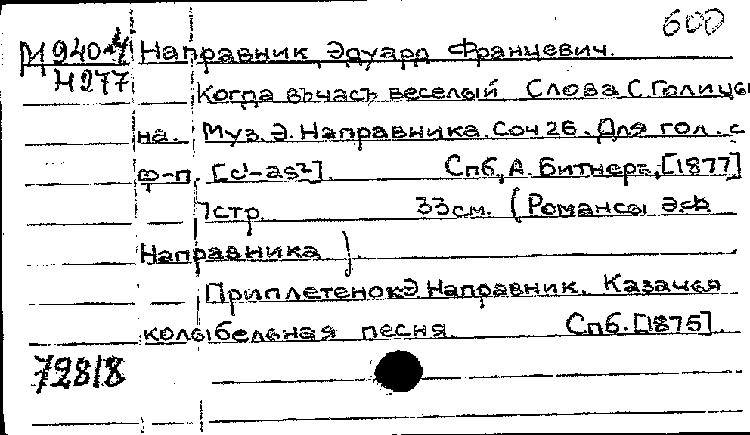 600
М 940-4 Направник, Эдуард Францевич.
Н 277 Когда въ часъ веселый Слова С. Голицы
на. Муз. Э. Направника. Соч 26. Для гол. с
ф-п. [c¹-as²]. Спб, А. Битнеръ, [1877]
7стр. 33 см. (Романсы Э.Ф.
Направника).
Приплетенок Э Направник. Казачья
колыбельная песня. Спб. [1875].
72818